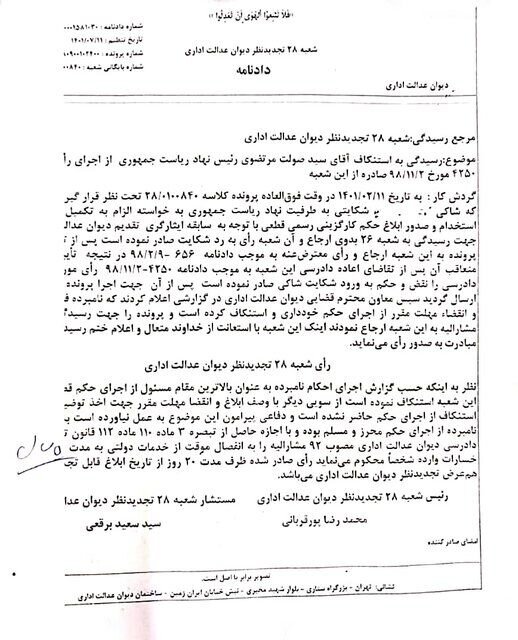 «فَلَا تَتَّبِعُوا الْهَوَىٰ أَنْ تَعْدِلُوا»
شماره دادنامه: ۰۰۰۱۵۸۱۰۳۰
تاریخ تنظیم: ۱۴۰۱/۰۷/۱۱
شماره پرونده: ۰۹۰۰۱۰۲۴۰۰
شماره بایگانی شعبه: ۰۰۸۴۰
شعبه ۲۸ تجدیدنظر دیوان عدالت اداری
دادنامه
دیوان عدالت اداری
مرجع رسیدگی:شعبه ۲۸ تجدیدنظر دیوان عدالت اداری
موضوع:رسیدگی به استنکاف آقای سید صولت مرتضوی رئیس نهاد ریاست جمهوری از اجرای رأ
۴۲۵۰ مورخ ۹۸/۱۱/۲ صادره از این شعبه
گردش کار: به تاریخ ۱۴۰۱/۰۲/۱۱ در وقت فوق‌العاده پرونده کلاسه ۲۸/۰۱۰۰۸۴۰ تحت نظر قرار گیر
که شاکی شکایتی به طرفیت نهاد ریاست جمهوری به خواسته الزام به تکمیل
استخدام و صدور ابلاغ حکم کارگزینی رسمی قطعی با توجه به سابقه ایثارگری تقدیم دیوان عدال
جهت رسیدگی به شعبه ۲۶ بدوی ارجاع و آن شعبه رأی به رد شکایت صادر نموده است پس از ت
پرونده به این شعبه ارجاع و رأی معترض‌عنه به موجب دادنامه ۶۵۶ - ۹۸/۲/۹ در نتیجه تأیی
متعاقب آن پس از تقاضای اعاده دادرسی این شعبه به موجب دادنامه ۴۲۵۰-۹۸/۱۱/۲ رأی مور
دادرسی را نقض و حکم به ورود شکایت شاکی صادر نموده است پس از آن جهت اجرا پرونده
ارسال گردید سپس معاون محترم قضایی دیوان عدالت اداری در گزارشی اعلام کردند که نامبرده ف
و انقضاء مهلت مقرر از اجرای حکم خودداری و استنکاف کرده است و پرونده را جهت رسیدگ
مشارالیه به این شعبه ارجاع نمودند اینک این شعبه با استعانت از خداوند متعال و اعلام ختم رسید
مبادرت به صدور رأی می‌نماید.
رأی شعبه ۲۸ تجدیدنظر دیوان عدالت اداری
نظر به اینکه حسب گزارش اجرای احکام نامبرده به عنوان بالاترین مقام مسئول از اجرای حکم قط
این شعبه استنکاف نموده است از سویی دیگر با وصف ابلاغ و انقضا مهلت مقرر جهت اخذ توضی
استنکاف از اجرای حکم حاضر نشده است و دفاعی پیرامون این موضوع به عمل نیاورده است
نامبرده از اجرای حکم محرز و مسلم بوده و با اجازه حاصل از تبصره ۳ ماده ۱۱۰ ماده ۱۱۲ قانون ت
دادرسی دیوان عدالت اداری مصوب ۹۲ مشارالیه را به انفصال موقت از خدمات دولتی به مدت
خسارات وارده شخصاً محکوم می‌نماید رأی صادر شده ظرف مدت ۲۰ روز از تاریخ ابلاغ قابل تجد
هم‌عرض تجدیدنظر دیوان عدالت اداری می‌باشد.
رئیس شعبه ۲۸ تجدیدنظر دیوان عدالت اداری
مستشار شعبه ۲۸ تجدیدنظر دیوان عد
محمد رضا پورقربانی
سید سعید برقعی
امضای صادر کننده
تصویر برابر با اصل است.
نشانی: تهران - بزرگراه ستاری - بلوار شهید مخبری - نبش خیابان ایران زمین - ساختمان دیوان عدالت اداری